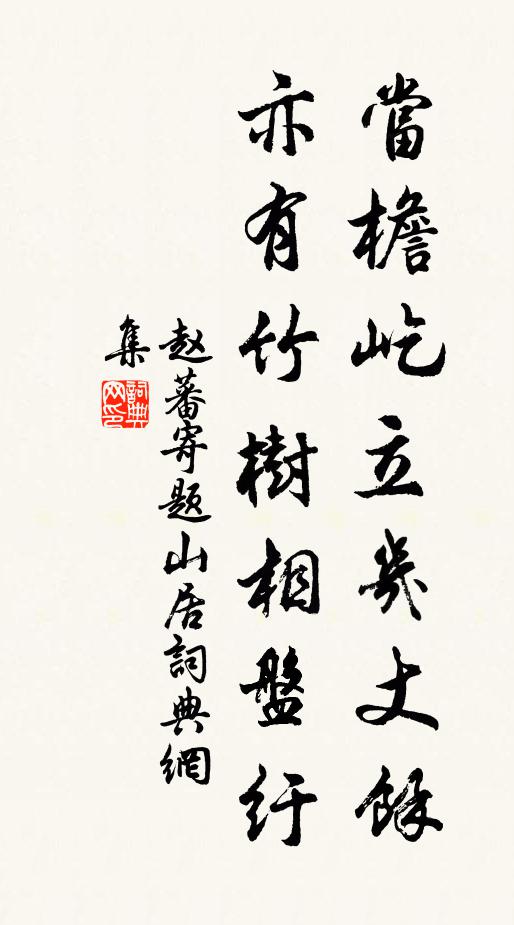 當檐屹立幾丈餘
亦有竹樹相盤紆
赵蕃寄题山居詞典網
集
詞典
网印